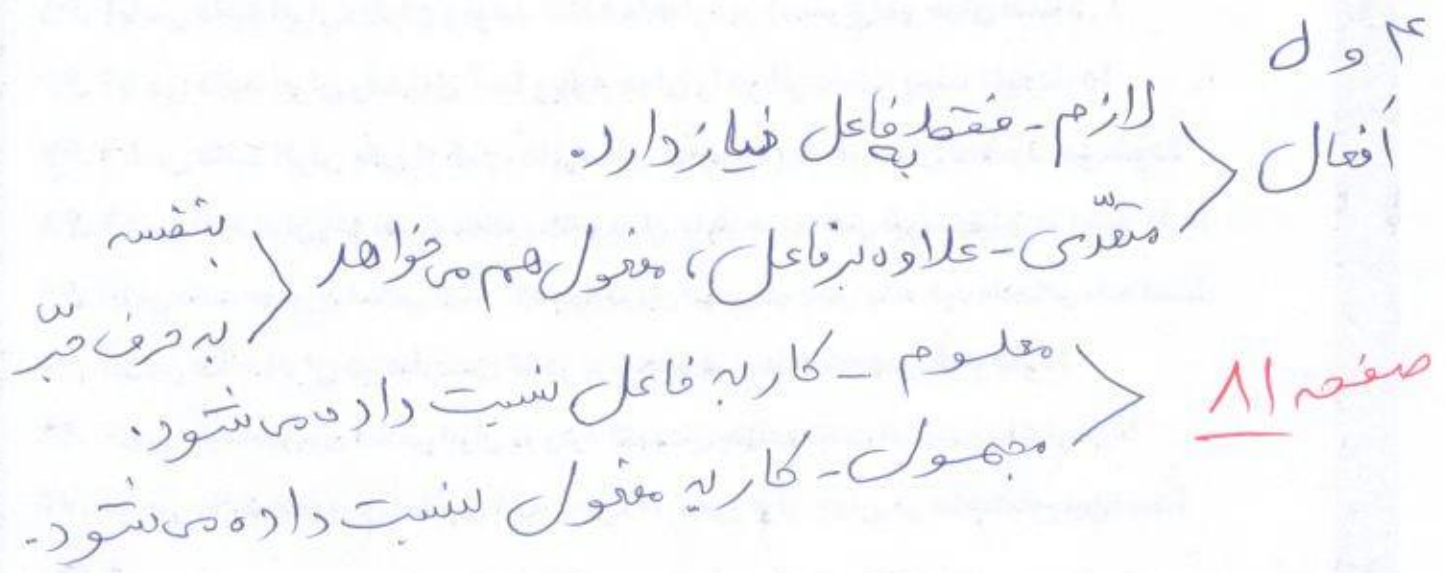 ۴ و ل
أفعال
لازم - فقط به فاعل نیاز دارد.
متعدّی - علاوه بر فاعل، مفعول هم می‌خواهد
بنفسه
به حرف جرّ
صفحه ۸۱
معلوم - کار به فاعل نسبت داده می‌شود.
مجهول - کار به مفعول نسبت داده می‌شود.